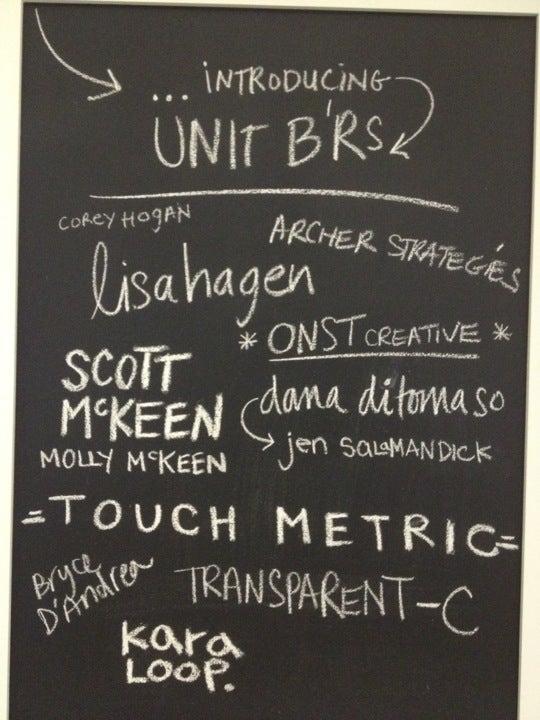 ... INTRODUCING
UNIT B'RS
COREY HOGAN
ARCHER STRATEGIES
lisa hagen
* ONST CREATIVE *
SCOTT
McKEEN
dana ditomaso
jen SALAMANDICK
MOLLY McKEEN
=TOUCH METRIC=
Bryce
D'Andrea
TRANSPARENT-C
kara
LOOP.